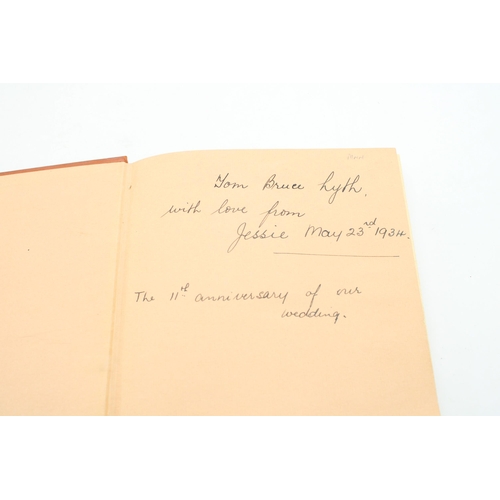 Tom Bruce Lyth.
with love from
Jessie May 23rd 1934.
The 11th anniversary of our
wedding.